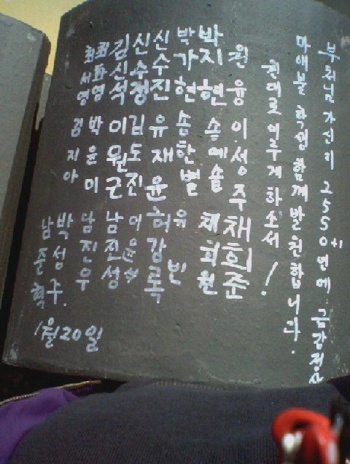 부처님 가신지 2550+1년에 금갑정사
마애불 학생 함께 발원합니다.
원대로 이루게하소서!
원 융 이성주 채희준
박지현 송예슬 채희원
박가현 송한별 유 빈
신수진 유재윤 허강록
신수정 김도진 이윤수
김신석 이원근 남진성
최화영 박윤미 남진우
최서영 지아 박성구.
남준혁
1월20일